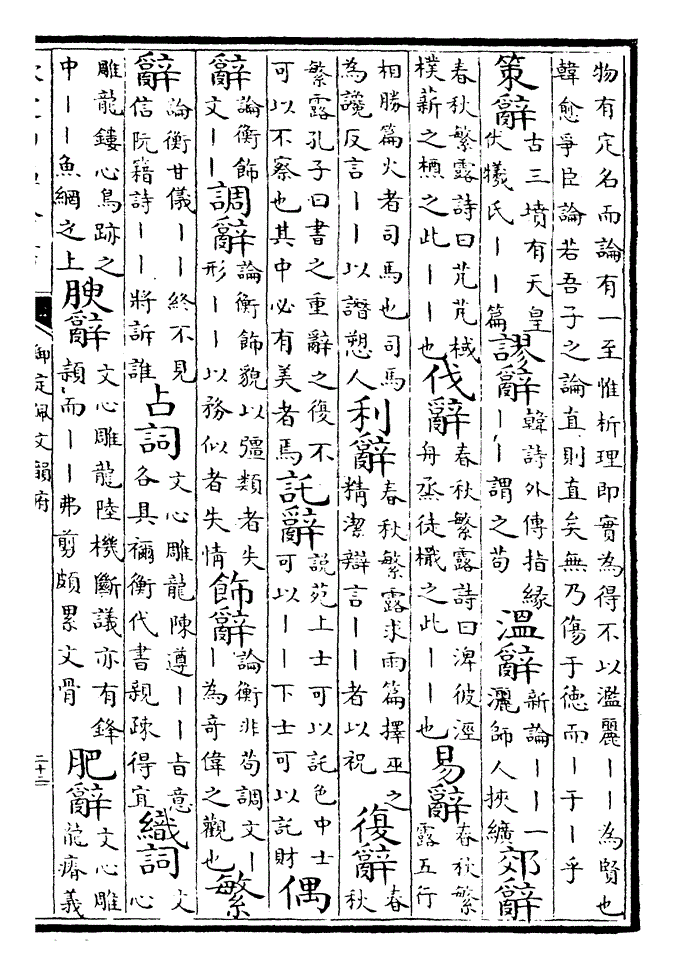 物有定名而論有一至惟析理即實為得不以濫麗丨丨為賢也
韓愈爭臣論若吾子之論直則直矣無乃傷于徳而丨于丨乎
策辭古三墳有天皇伏犧氏丨丨篇謬辭韓詩外傳指緣丨丨謂之苟溫辭新論丨丨一灑師人挾纊郊辭
春秋繁露詩曰芃芃棫樸薪之槱之此丨丨也伐辭春秋繁露詩曰淠彼涇舟烝徒檝之此丨丨也易辭春秋繁露五行
相勝篇火者司馬也司馬為讒反言丨丨以譖愬人利辭春秋繁露求雨篇擇巫之精潔辯言丨丨者以祝復辭春秋
繁露孔子曰書之重辭之復不可以不察也其中必有美者焉託辭說苑上士可以託色中士可以丨丨下士可以託財偶
辭論衡飾文丨丨調辭論衡飾貌以彊類者失形丨丨以務似者失情飾辭論衡非苟調文丨丨為奇偉之觀也繁
辭論衡甘儀丨丨終不見信阮籍詩丨丨將訴誰占詞文心雕龍陳遵丨丨百意各具禰衡代書親疎得宜織詞文心
雕龍鏤心鳥跡之中丨丨魚網之上腴辭文心雕龍陸機斷議亦有鋒頴而丨丨弗剪頗累文骨肥辭文心雕龍瘠義
御定佩文韻府